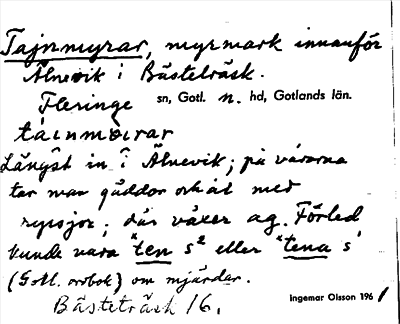 Tajnmyrar, myrmark innanför
Älnevik i Bästeträsk.
Fleringe sn, Gotl. n. hd, Gotlands län.
tainmoirar
Längst in i Älnevik; på vårarna
tar man gäddor och åt med
ryssjor; där växer ag. Förled
kunde vara *ten s² eller *tena s
(Gotl. ordbok) om mjärdar.
Bästeträsk 16.
Ingemar Olsson 1961